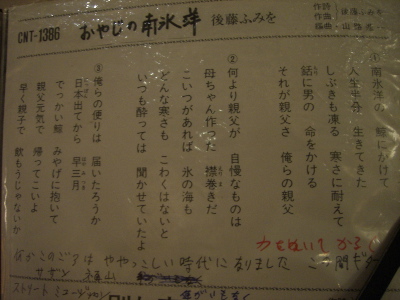 CNT-1386
おやじの南氷洋
後藤ふみを
作詩
作曲
編曲
①南氷洋の 鯨にかけて
人生半分 生きてきた
しぶきも凍る 寒さに耐えて
話に男の 命をかける
それが親父さ 俺らの親父
②何より親父が 自慢なものは
母ちゃん作った 襟巻きだ
こいつがあれば 氷の海も
どんな寒さも こわくはないと
いつも酔っては 聞かせていたよ
③俺らの便りは 届いたろうか
日本出てから 早三月
でっかい鯨 みやげに抱いて
親父元気で 帰ってこいよ
早く親子で 飲もうじゃないか
力をぬいて かるく
ややっこしい 時代になりました この間
サザン 福山
ストリート ミュージシャン